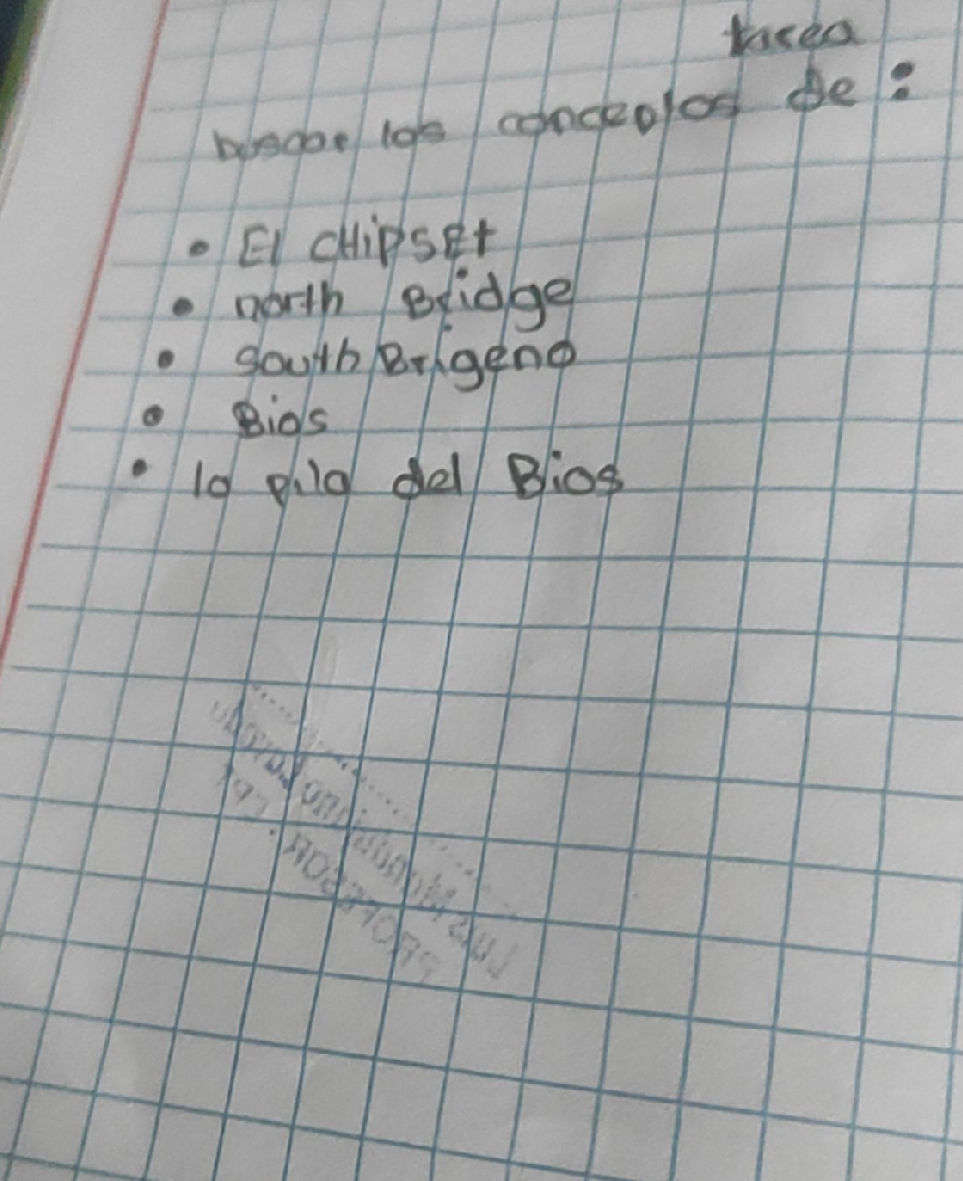 tarea
buscar los conceptos de :
• El CHiPSEt
• north Bridge
• South Brigeno
• Bios
• la pila del Bios
PROFESOR